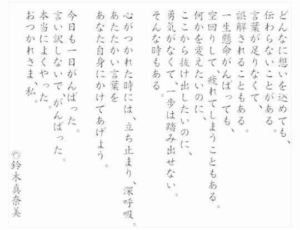 どんなに想いを込めても、
伝わらないことがある。
言葉が足りなくて、
誤解されることもある。
一生懸命がんばっても、
空回りして疲れてしまうこともある。
何かを変えたいのに、
ここから抜け出したいのに、
勇気がなくて、一歩も踏み出せない。
そんな時もある。
心がつかれた時には、立ち止まり、深呼吸。
あたたかい言葉を
あなた自身にかけてあげよう。
今日も一日がんばった。
言い訳しないで、がんばった。
本当によくやった。
おつかれさま、私。
鈴木真奈美